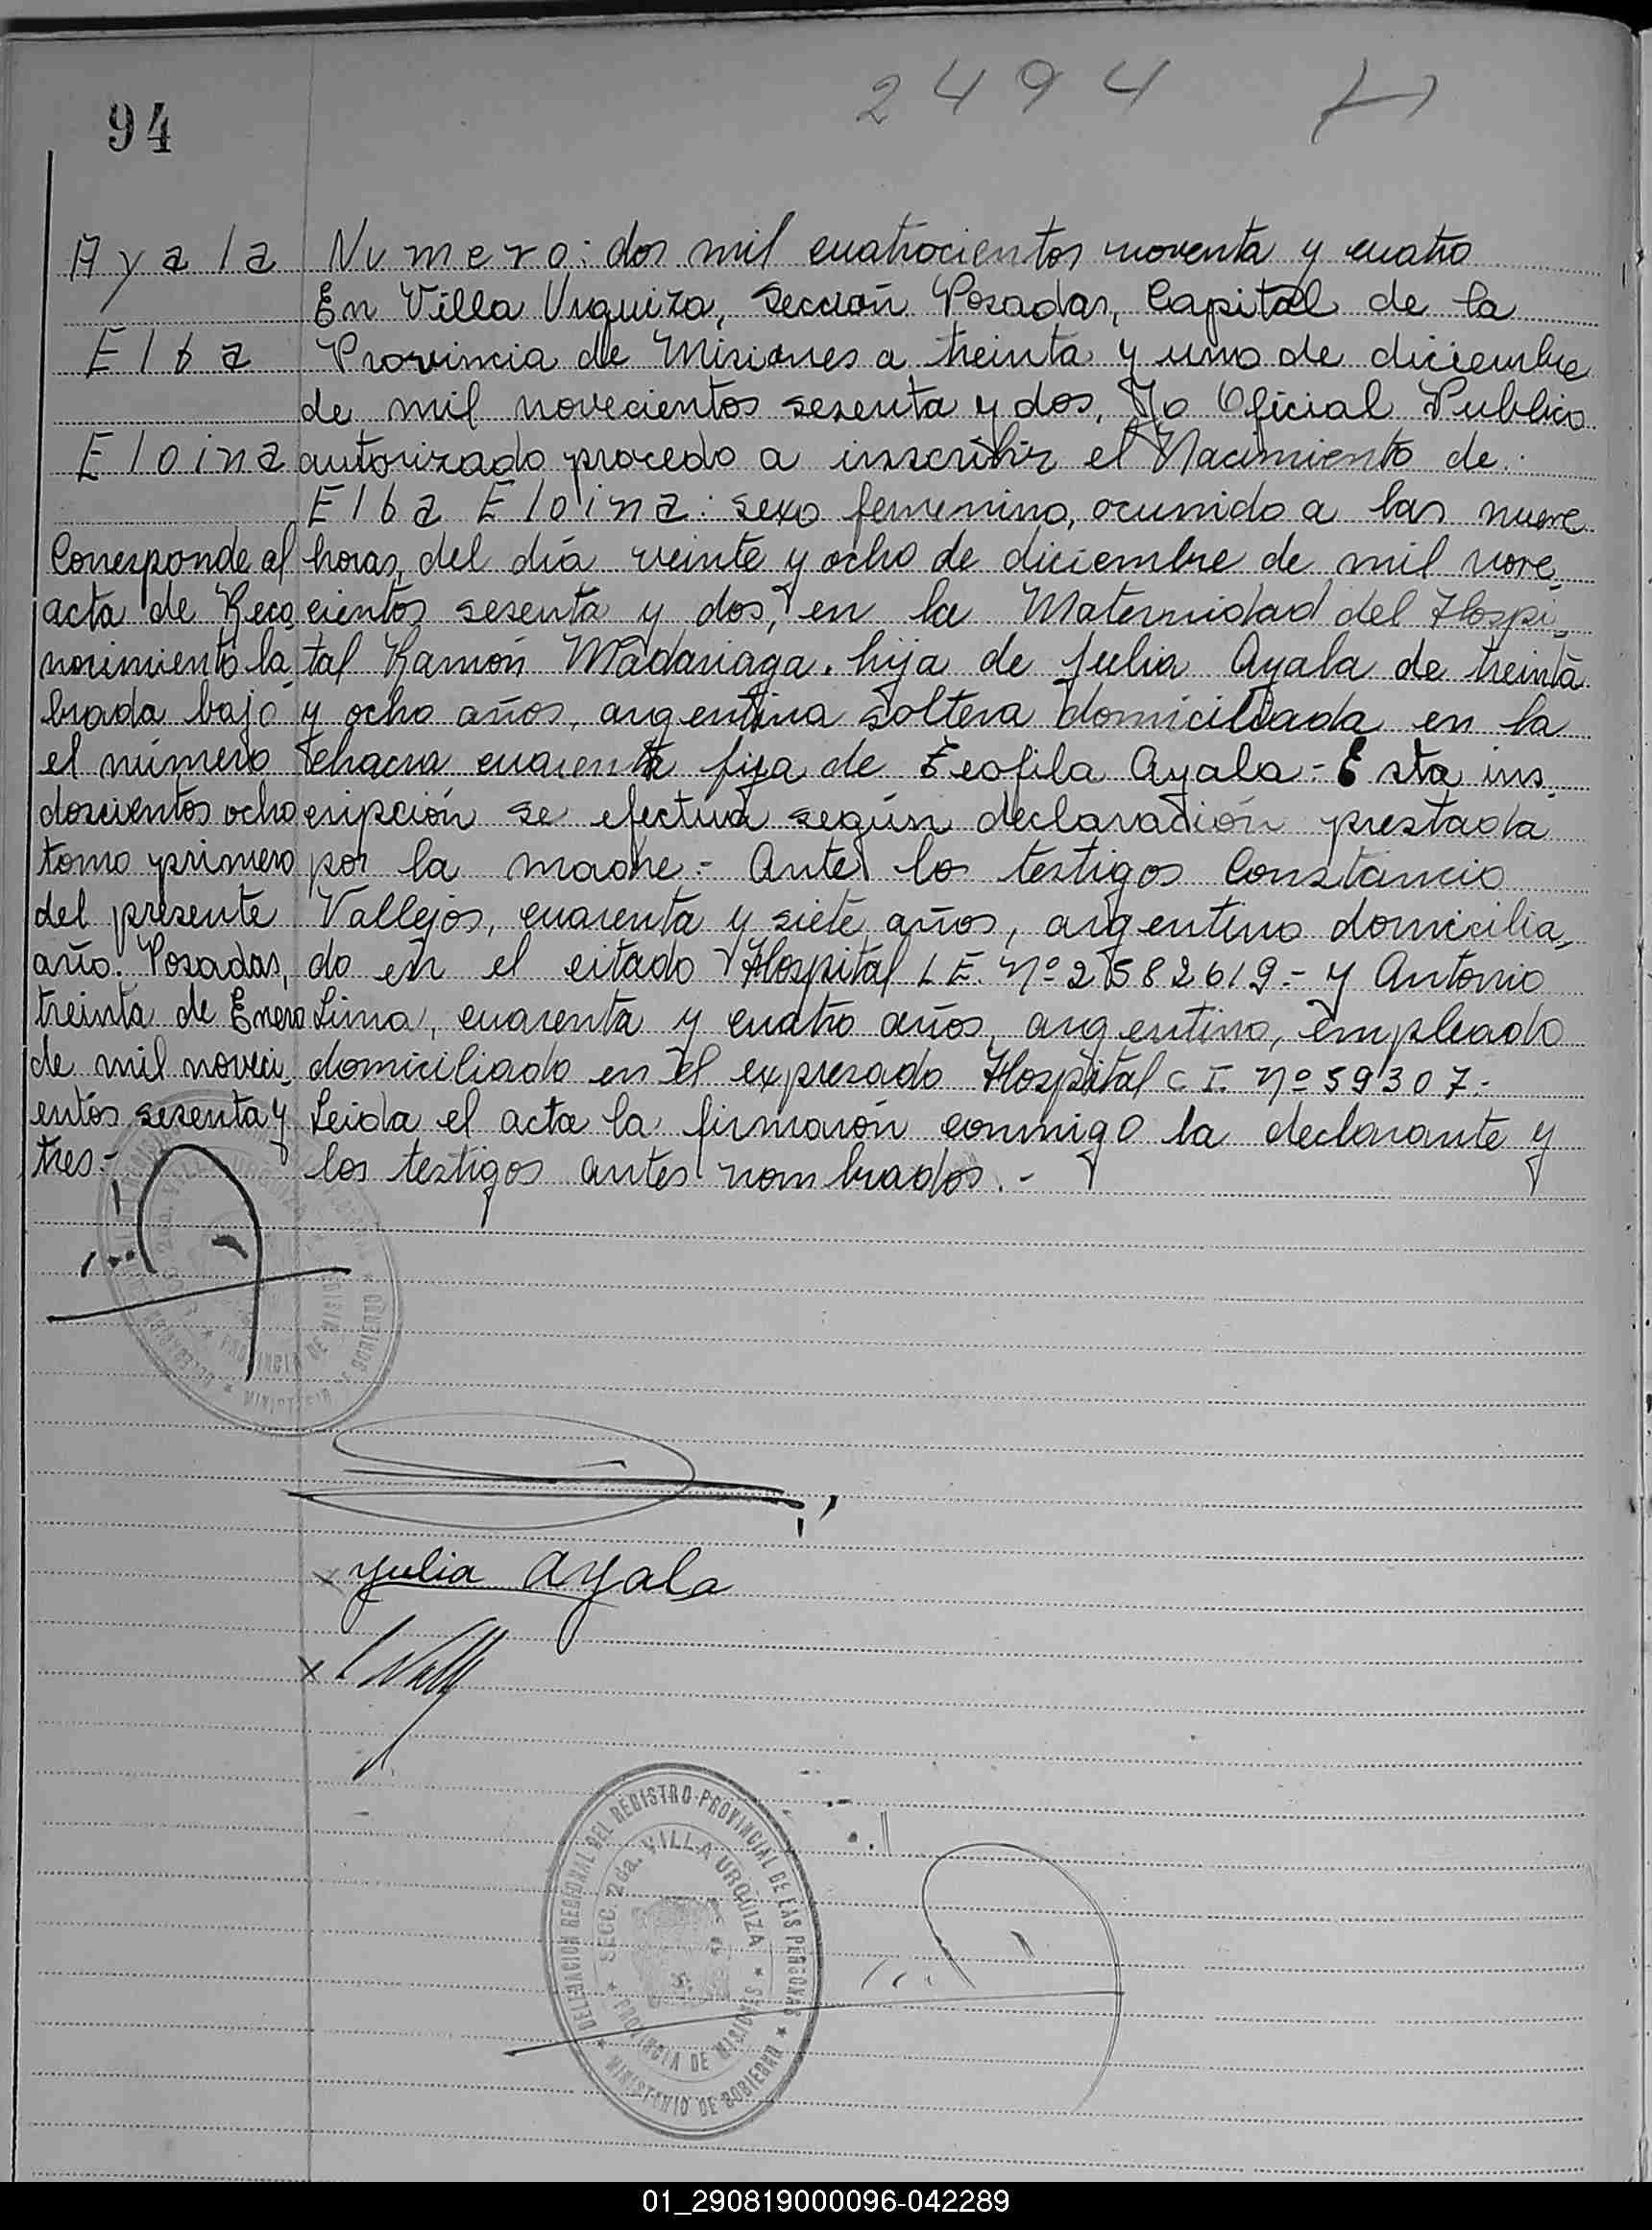 94
2494
Ayala
Elba
Eloina
Corresponde al
acta de Reco
nocimiento la
brada bajo
el número
doscientos ocho
tomo primero
del presente
año. Posadas,
treinta de Enero
de mil noveci
entos sesenta y
tres.-
Numero: dos mil cuatrocientos noventa y cuatro
En Villa Urquiza, Sección Posadas, Capital de la
Provincia de Misiones a treinta y uno de diciembre
de mil novecientos sesenta y dos, Yo Oficial Publico
autorizado procedo a inscribir el Nacimiento de:
Elba Eloina: sexo femenino, ocurrido a las nueve
horas, del día veinte y ocho de diciembre de mil nove
cientos sesenta y dos, en la Maternidad del Hospi
tal Ramón Madariaga. hija de Julia Ayala de treinta
y ocho años, argentina soltera domiciliada en la
chacra cuarenta hija de Teofila Ayala.- Esta ins
cripción se efectúa según declaración prestada
por la madre.- Ante los testigos Constancio
Vallejos, cuarenta y siete años, argentino domicilia
do en el citado Hospital L E. Nº 2582619.- y Antonio
Lima, cuarenta y cuatro años, argentino, empleado
domiciliado en el expresado Hospital C I. Nº 59307.-
Leida el acta la firmarón conmigo la declarante y
los testigos antes nombrados.-
x Yulia Ayala
x
DELEGACION REGIONAL DEL REGISTRO PROVINCIAL DE LAS PERSONAS
SECC. 2da. VILLA URQUIZA
PROVINCIA DE MISIONES
MINISTERIO DE GOBIERNO
01_290819000096-042289